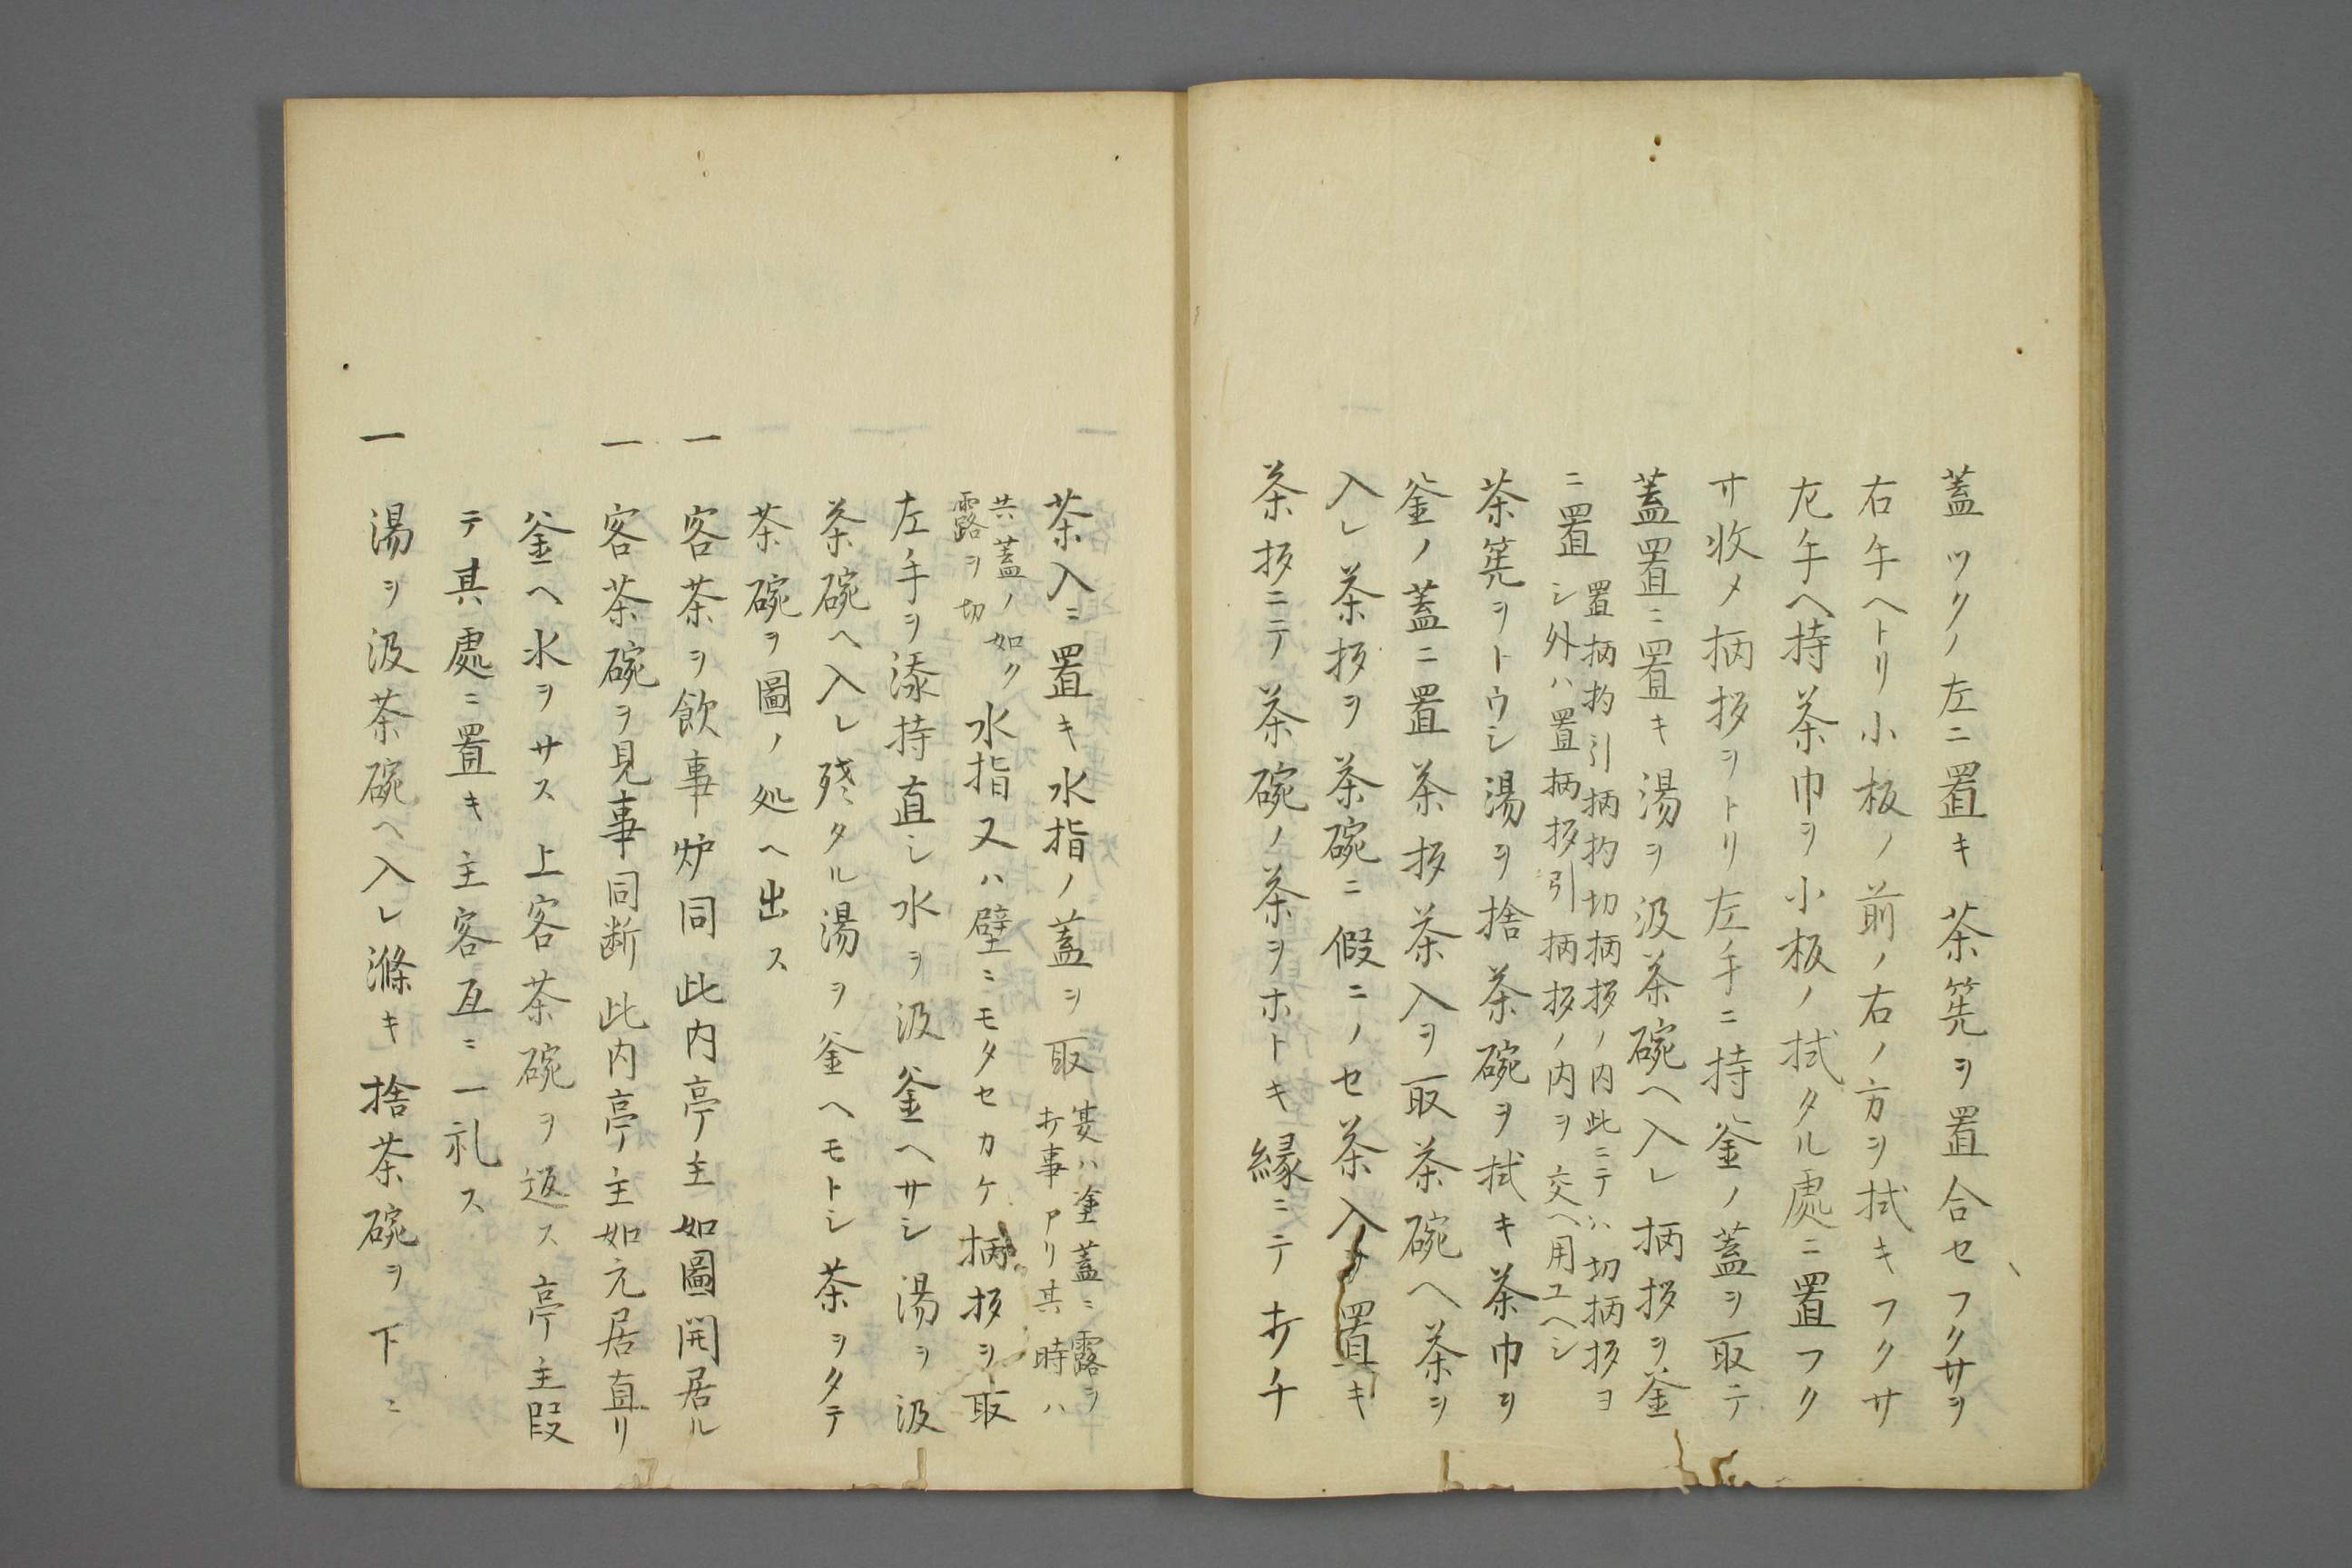 蓋ツクノ左ニ置キ茶筅ヲ置合セフクサヲ
右手ヘトリ小板ノ前ノ右ノ方ヲ拭キフクサ
左手ヘ持茶巾ヲ小板ノ拭タル處ニ置フク
サ收メ柄杓ヲトリ左手ニ持釜ノ蓋ヲ取テ
蓋置ニ置キ湯ヲ汲茶碗ヘ入レ柄杓ヲ釜
ニ置
置柄杓引柄杓切柄杓ノ内此ニテハ切柄杓ヲ
シ外ハ置柄杓引柄杓ノ内ヲ交ヘ用ユヘシ
茶筅ヲトウシ湯ヲ捨茶碗ヲ拭キ茶巾ヲ
釜ノ蓋ニ置茶杓茶入ヲ取茶碗ヘ茶ヲ
入レ茶杓ヲ茶碗ニ假ニノセ茶入ヲ置キ
茶杓ニテ茶碗ノ茶ヲホトキ縁ニテ打チ
茶入ニ置キ水指ノ蓋ヲ取
爰ハ塗蓋ニ露ヲ
打事アリ其時ハ
共蓋ノ如ク
露ヲ切
水指又ハ壁ニモタセカケ柄杓ヲ取
左手ヲ添持直シ水ヲ汲釜ヘサシ湯ヲ汲
茶碗ヘ入レ殘タル湯ヲ釜ヘモトシ茶ヲタテ
茶碗ヲ圖ノ処ヘ出ス
一 客茶ヲ飲事炉同此内亭主如圖開居ル
一 客茶碗ヲ見事同断此内亭主如元居直リ
釜ヘ水ヲサス上客茶碗ヲ返ス亭主段
テ其處ニ置キ主客互ニ一礼ス
一 湯ヲ汲茶碗ヘ入レ滌キ捨茶碗ヲ下ニ